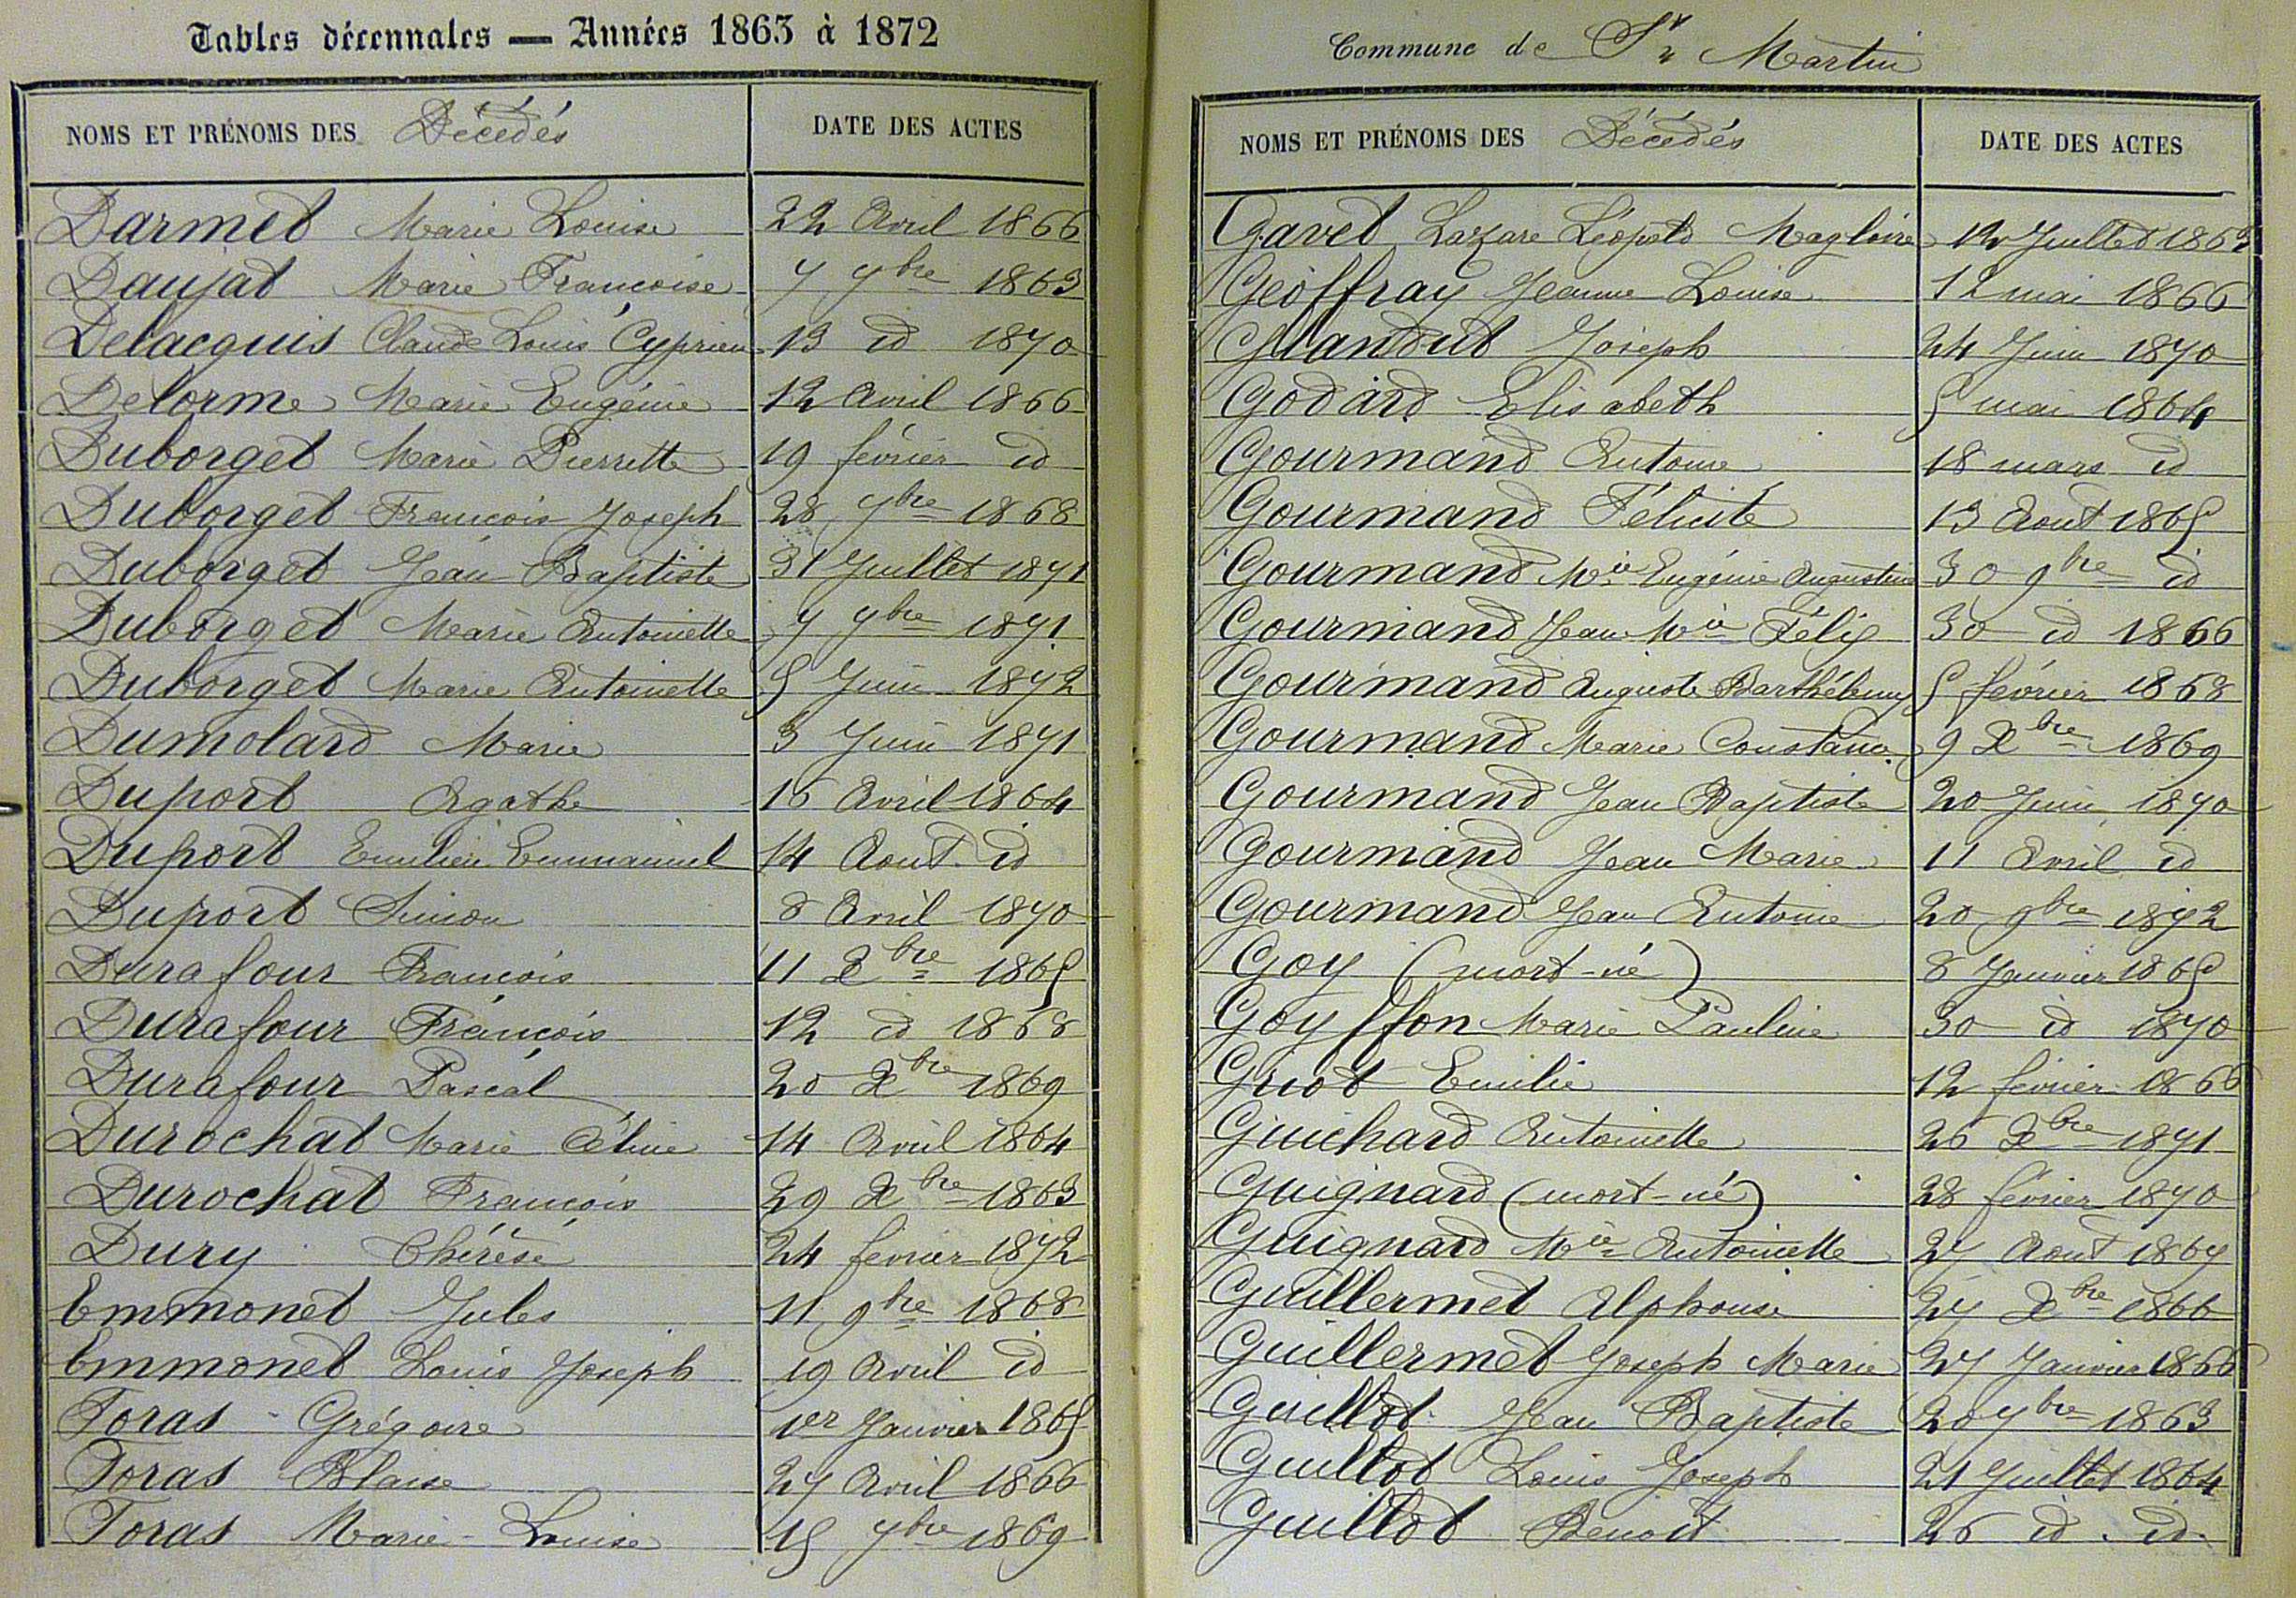 Tables décennales — Années 1863 à 1872
NOMS ET PRÉNOMS DES Décédés DATE DES ACTES
Darmet Marie Louise 22 Avril 1866
Daujat Marie Françoise 7 7bre 1863
Delacquis Claude Louis Cyprien 13 id 1870
Delorme Marie Eugénie 12 Avril 1866
Duborget Marie Pierrette 19 février id
Duborget François Joseph 28 7bre 1868
Duborget Jean Baptiste 31 Juillet 1871
Duborget Marie Antoinette 7 7bre 1871
Duborget Marie Antoinette 5 Juin 1872
Dumolard Marie 3 Juin 1871
Duport Agathe 16 Avril 1864
Duport Emilien Emmanuel 14 Aout id
Duport Simon 8 Avril 1870
Durafour François 11 Xbre 1865
Durafour François 12 id 1868
Durafour Pascal 20 Xbre 1869
Durochat Marie Céline 14 Avril 1864
Durochat François 29 Xbre 1863
Dury Thérèse 24 février 1872
Emmonet Jules 11 9bre 1868
Emmonet Louis Joseph 19 Avril id
Foras Grégoire 1er Janvier 1865
Foras Blaise 27 Avril 1866
Foras Marie-Louise 15 7bre 1869
Commune de St Martin
NOMS ET PRÉNOMS DES Décédés DATE DES ACTES
Gavet Lazare Léopold Magloire 12 Juillet 1863
Geoffray Jeanne Louise 12 mai 1866
Glandut Joseph 24 Juin 1870
Godard Elisabeth 5 mai 1864
Gourmand Antoine 18 mars id
Gourmand Félicité 13 Aout 1865
Gourmand Mie Eugénie Augustine 30 9bre id
Gourmand Jean Mie Félix 30 id 1866
Gourmand Auguste Barthélemy 5 février 1868
Gourmand Marie Constance 9 Xbre 1869
Gourmand Jean Baptiste 20 Juin 1870
Gourmand Jean Marie 11 Avril id
Gourmand Jean Antoine 20 9bre 1872
Goy (mort-né) 8 Janvier 1865
Goyffon Marie Pauline 30 id 1870
Griot Emilie 12 février 1866
Guichard Antoinette 26 Xbre 1871
Guignard (mort-né) 28 février 1870
Guignard Mie Antoinette 27 Aout 1867
Guillermet Alphonse 27 Xbre 1866
Guillermet Joseph Marie 27 Janvier 1866
Guillot Jean Baptiste 20 7bre 1863
Guillot Louis Joseph 21 Juillet 1864
Guillot Benoit 26 id id